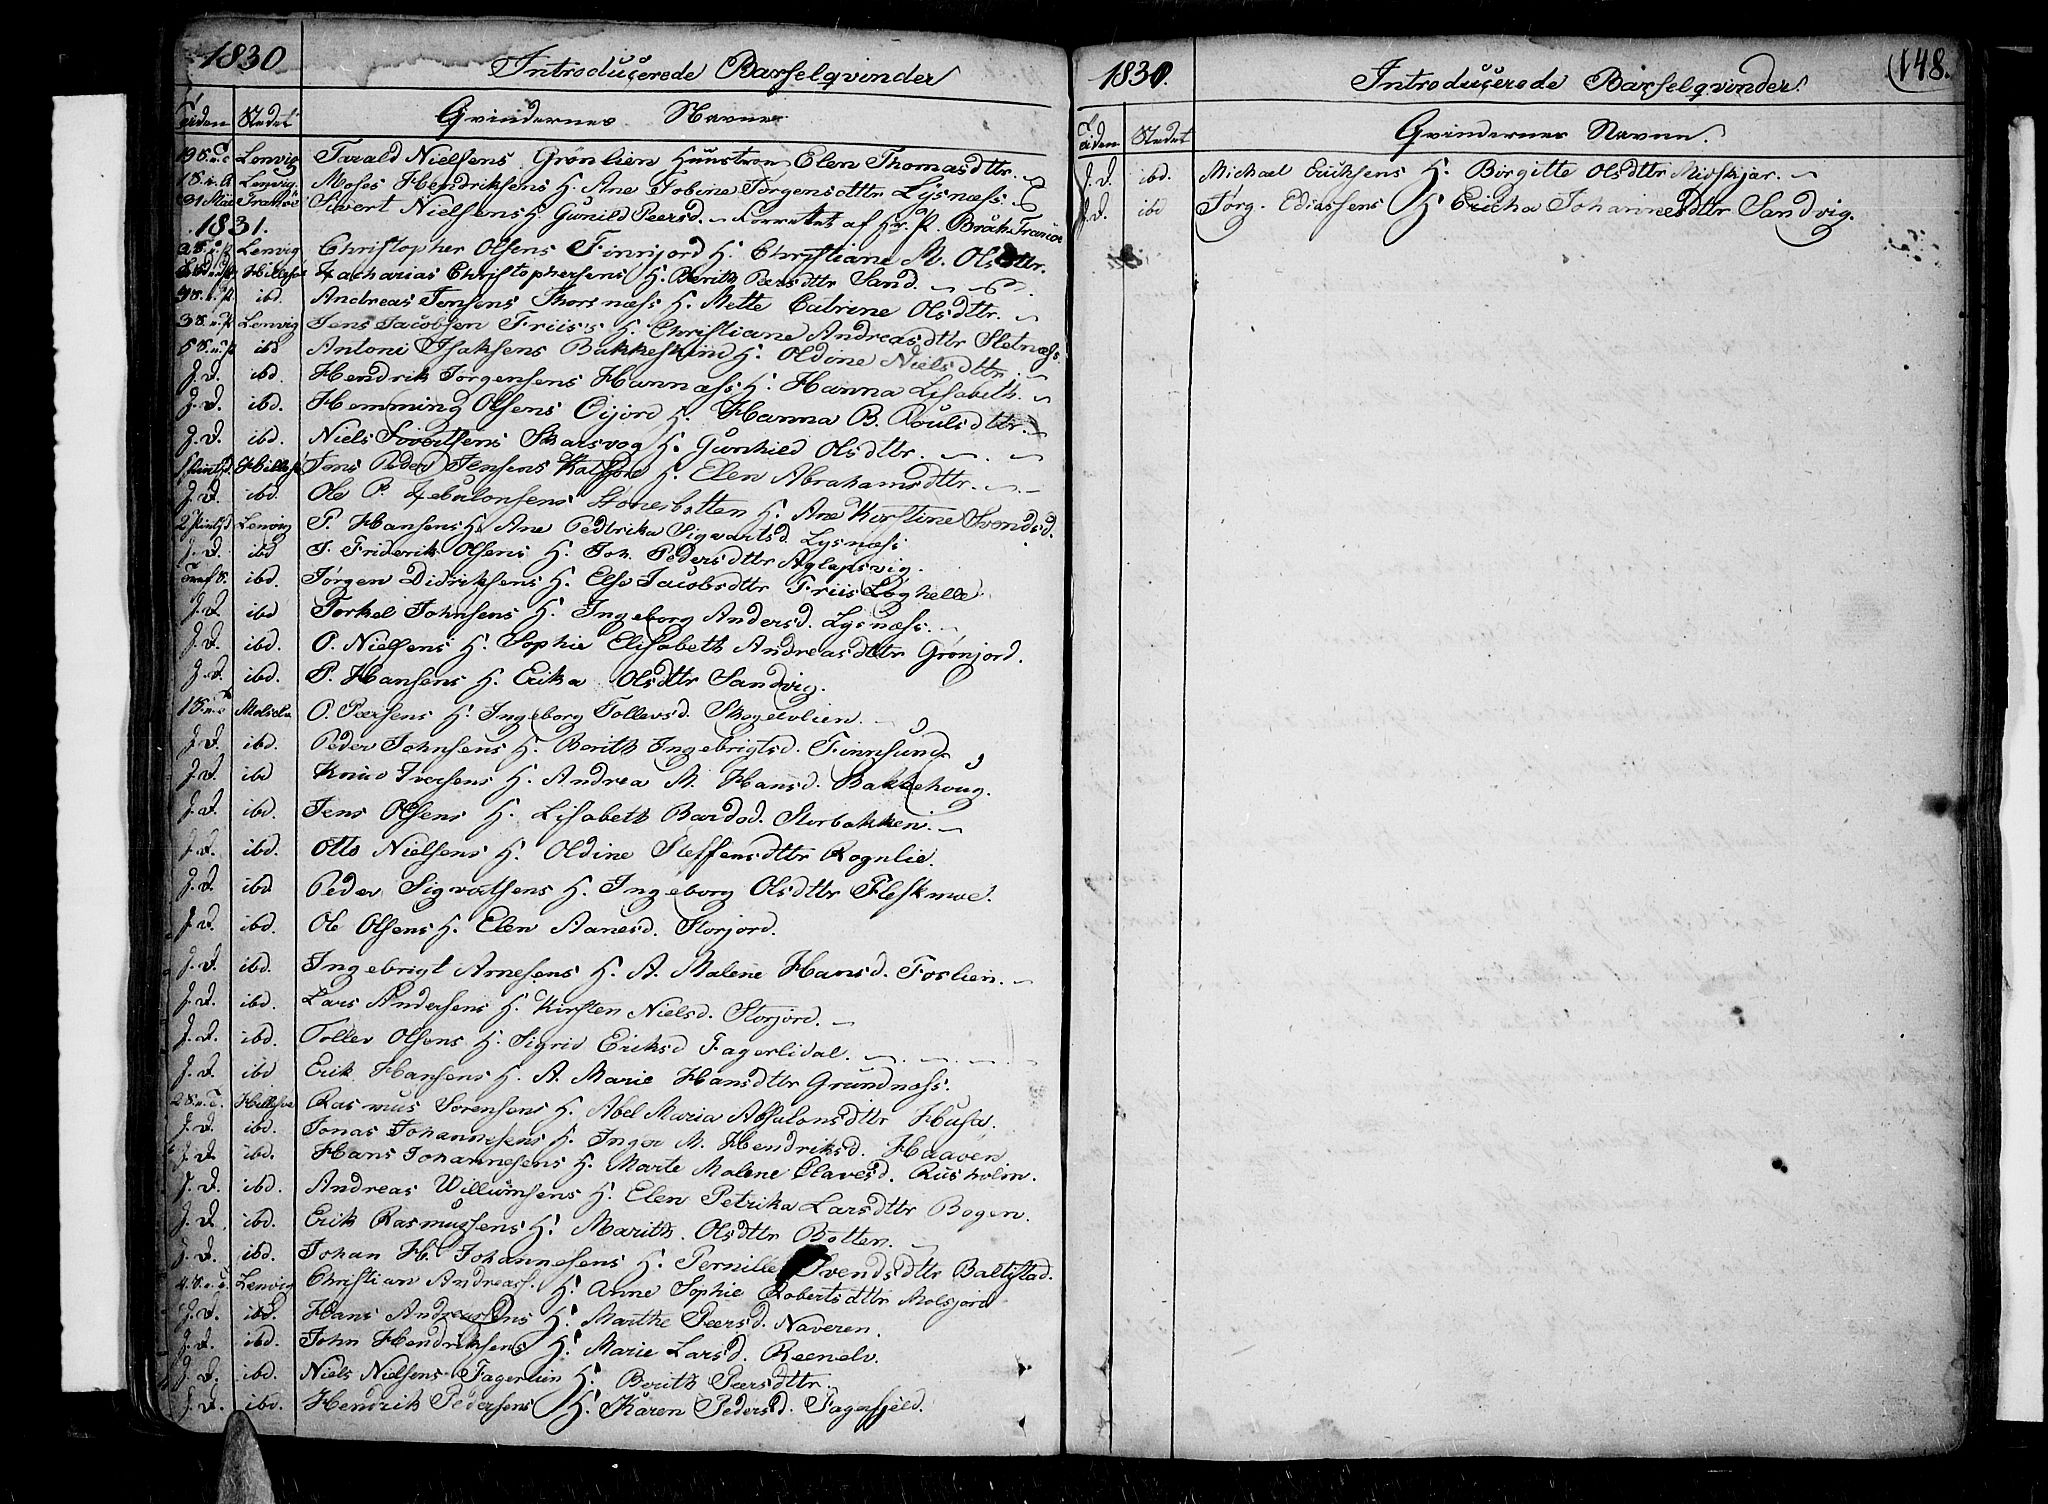 1830
Introducerede Barselqvinder
Tiden Stedet Qvindernes Navne
19 S. n. T. Lenvig Tarald Nielsens Grönlien Huustroe Elen Thomasdttr.
1 S. i. A. Lenvig. Moses Hendriksens H. Ane Tobine Jørgensdttr Lysnæss.
Tranöe Sivert Nielsens H. Gunild Peersd. - Forrettet af Hr. P. Tranöe
1831.
Lenvig Christopher Olsens Finnjord H. Christiane M. Olsdttr.
Hillesøe Zacharias Christophersens H. Berith Peersdttr Sand.
ibd. Andreas Jensens Thorsnæss H. Mette Catrine Olsdttr.
3 S. n. P. Lenvig Jens Jacobsen Friiss H. Christiane Andreasdttr Sletnæss.
5 S. n. P. ibd Antoni Isaksens Bakkeskind H. Oldine Nielsdttr.
J. D. ibd. Hendrik Jørgensens Hannæss H. Hanna Lisabeth.
J. D. ibd. Hemming Olsens Eijord H. Hanna B. Poulsdttr.
J. D. ibd. Niels Sivertsens Skarsvog H. Gunhild Olsdttr.
Hillesø Jens Peder Jensens Kalfjord H. Elen Abrahamsdttr.
J. D. ibd. Ole P. Zebulonsens Stonesbotten H. Ane Kirstine Svendsd.
Lenvig P. Hansens H. Ane Pedrika Sigvartsd. Lysnæss
J. D. ibd J. Friderik Olsens H. Joh. Pedersdttr Aglapsvig.
ibd. Jørgen Didriksens H. Else Jacobsdttr Friis Løghelle.
J. D. ibd Torkel Johnsens H. Ingeborg Andersd. Lysnæss.
J. D. ibd. O. Nielsens H. Sophie Elisabeth Andreasdttr Grönjord.
J. D. ibd. P. Hansens H. Erika Olsdttr Sandvig.
1 S. n. T. Molselv O. Peersens H. Ingeborg Tollevsd. Skogelvlien.
J. D. ibd. Peder Johnsens H. Berith Ingebrigtsd. Finnsund
J. D. ibd Knud Iversens H. Andrea M. Hansd. Bakkehoug.
J. D. ibd. Jens Olsens H. Lisabeth Bardod. Storbakken.
J. D. ibd. Otto Nielsens H. Oldine Steffensdttr Rognlie.
J. D. ibd Peder Sigvatsens H. Ingeborg Olsdttr Fleskmoe.
J. D. ibd. Ole Olsens H. Elen Aanesd. Storjord.
J. D. ibd. Ingebrigt Arnesens H. A. Malene Hansd. Foslien.
J. D. ibd. Lars Andersens H. Kirsten Nielsd. Storjord.
J. D. ibd. Tollev Olsens H. Sigrid Eriksd Fagerlidal.
J. D. ibd Erik Hansens H. A. Marie Hansdttr Grundnæss.
2 S. n. T. Hillesøe Rasmus Sørensens H. Abel Maria Absalonsdttr Husa.
J. D. ibd. Jonas Johannesens H. Inger M. Hendriksd. Haaven.
J. D. ibd. Hans Johannesens H. Marte Malene Clavesd. Rusholm.
J. D. ibd. Andreas Willumsens H. Elen Petrika Larsdttr Bogen.
J. D. ibd. Erik Rasmussens H. Marith Olsdttr Botten.
J. D. ibd. Johan H. Johannesens H. Pernille Svendsdttr Baltsstad.
4 S. n. T. Lenvig Christian Andreass. H. Anne Sophie Robertsdttr Molsjord
J. D. ibd. Hans Andreasens H. Marthe Peersd. Naveren.
J. D. ibd. John Hendriksens H. Marie Larsd. Reenelv.
J. D. ibd. Niels Nielsens Fagerlien H. Berith Peersdttr.
J. D. ibd. Hendrik Pedersens H. Karen Pedersd. Fagerfjeld.
1830. Introducerede Barselqvinder (148.
Tiden Stedet Qvindernes Navne.
J. D. ibd. Michael Eriksens H. Birgitte Olsdttr Midskjær.
J. D. ibd Jørg. Ediassens H Ericha Johannesdttr Sandvig.